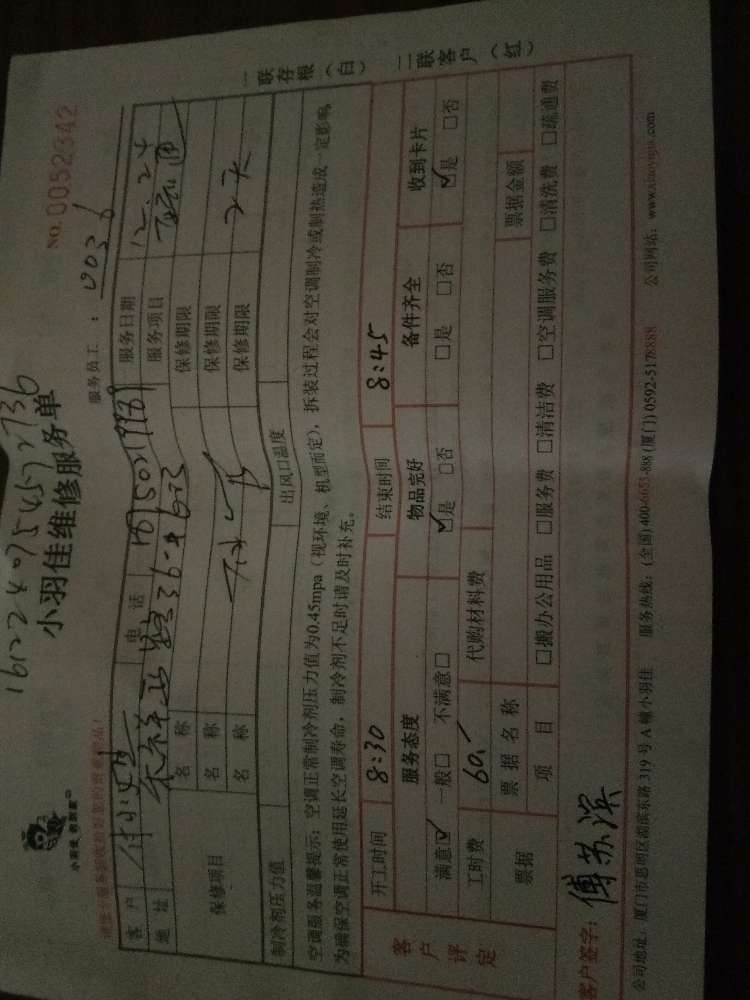 1612240954572736
小羽佳维修服务单
NO. 0052342
小羽佳 到家
服务员工： 0036
客 户 电 话 服务日期 12.24
地 址 服务项目
保修项目 名 称 保修期限
名 称 保修期限
名 称 保修期限 2天
制冷剂压力值 出风口温度
空调服务温馨提示：空调正常制冷剂压力值为0.45mpa（视环境、机型而定），拆装过程会对空调制冷或制热造成一定影响，
为确保空调正常使用延长空调寿命，制冷剂不足时请及时补充。
客户评定 开工时间 8:30 结束时间 8:45
服务态度 物品完好 备件齐全 收到卡片
满意☑ 一般□ 不满意□ ☑是 □否 □是 □否 ☑是 □否
工时费 60.- 代购材料费
票据 票 据 名 称 票据金额
项 目 □搬办公用品 □服务费 □清洁费 □空调服务费 □清洗费 □疏通费
客户签字： 傅苏滨
公司地址：厦门市思明区湖滨东路 319 号 A 幢小羽佳 服务热线：(全国)400-6655-888 (厦门)0592-5178888 公司网站：www.xiaoyujia.com
一联存根（白） 二联客户（红）